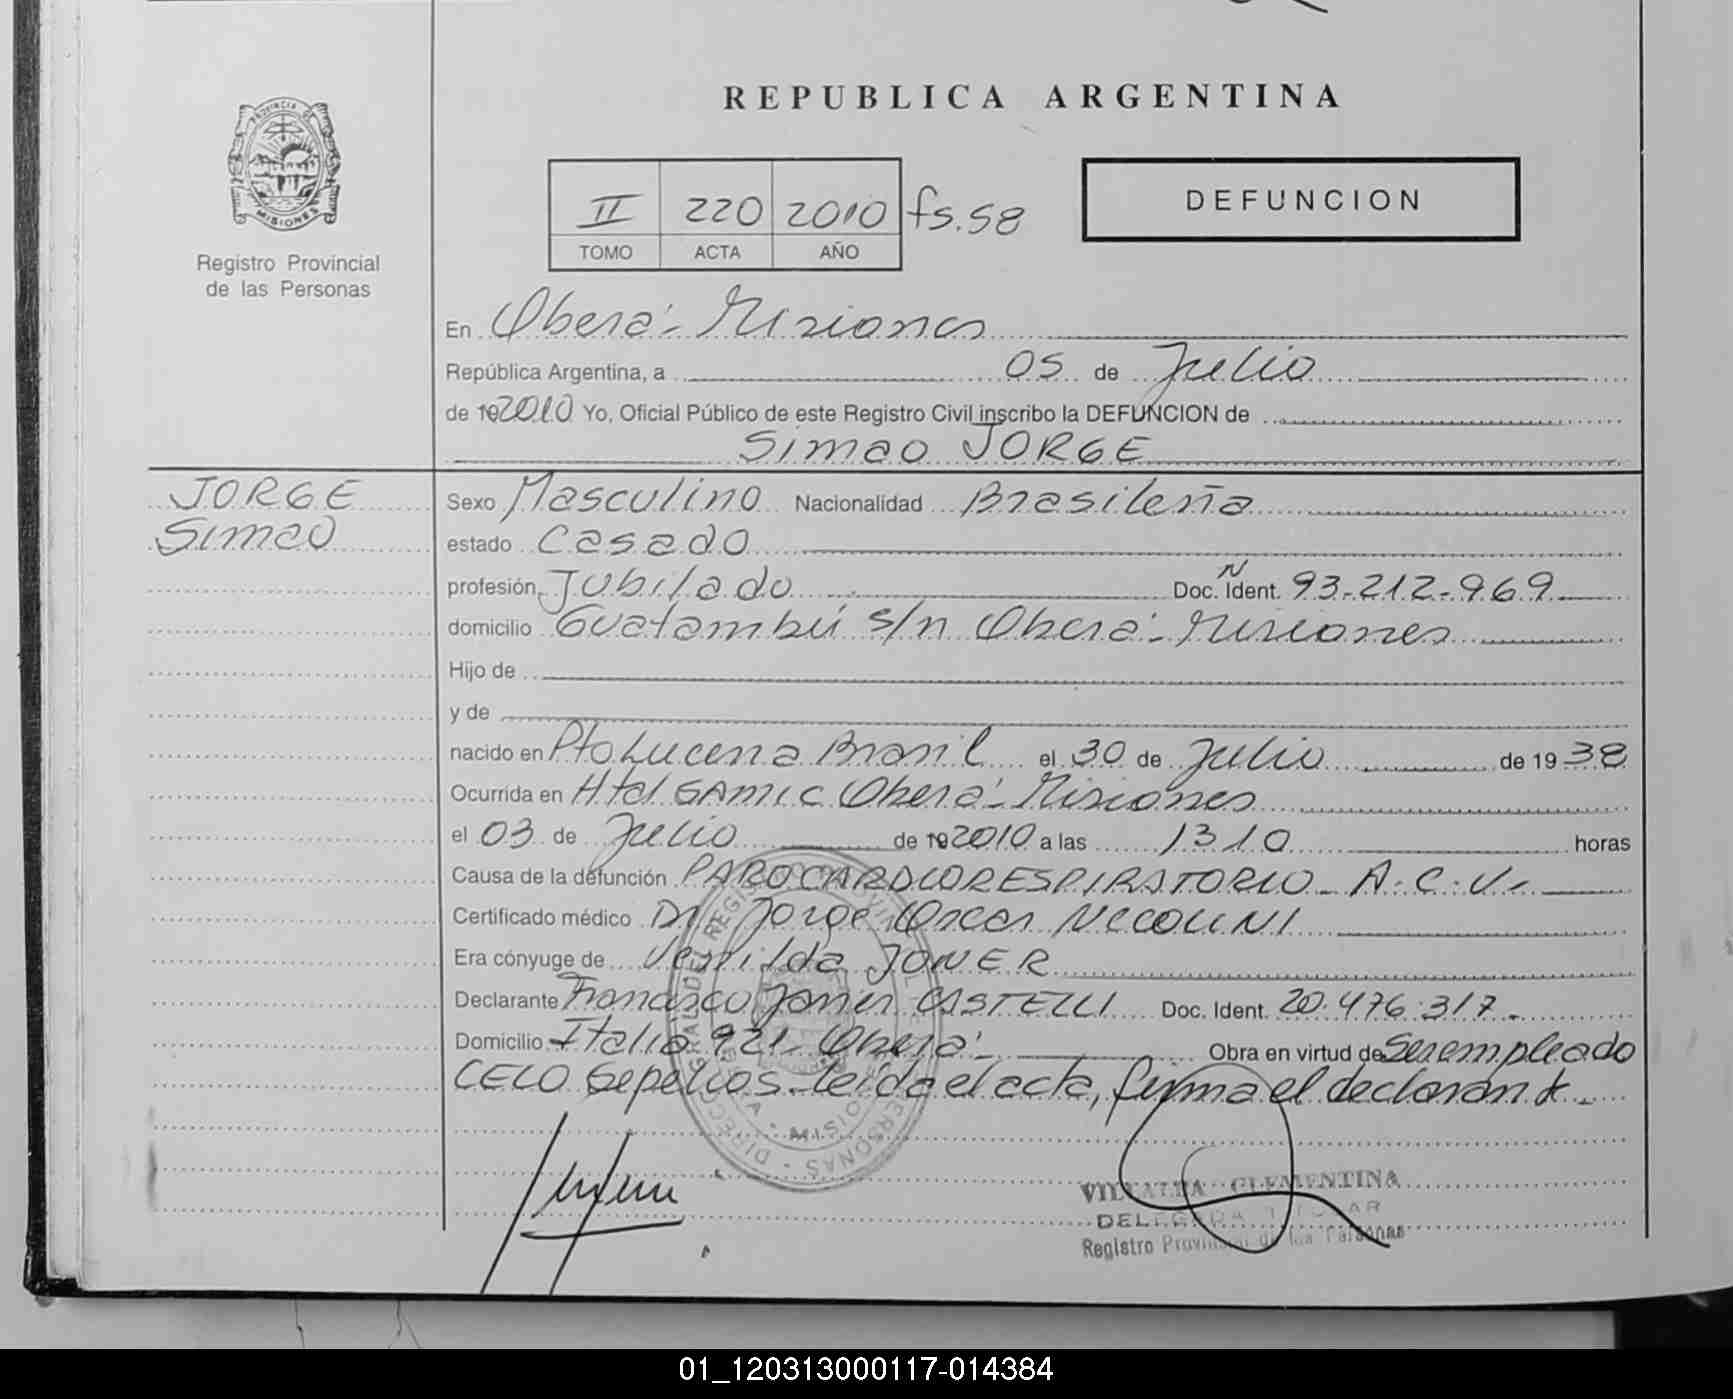 REPUBLICA ARGENTINA
PROVINCIA DE
MISIONES
Registro Provincial
de las Personas
II 220 2010 fs.58
TOMO ACTA AÑO
DEFUNCION
En Oberá - Misiones
República Argentina, a 05 de Julio
de 19 2010 Yo, Oficial Público de este Registro Civil inscribo la DEFUNCION de
Simao JORGE
JORGE
Simao
Sexo Masculino Nacionalidad Brasileña
estado Casado
profesión Jubilado Doc. N Ident. 93-212-969
domicilio Guatambú s/n Oberá - Misiones
Hijo de
y de
nacido en Pto Lucena Brasil el 30 de Julio de 19 38
Ocurrida en Htal SAMIC Oberá - Misiones
el 03 de Julio de 19 2010 a las 13 10 horas
Causa de la defunción PAROCARDIORESPIRATORIO - A.C.V.
Certificado médico Dr Jorge Oscar NICOLINI
Era cónyuge de JONER
Declarante Francisco Javier CASTELLI Doc. Ident. 20.476.317.
Domicilio Italia 921 - Oberá - Obra en virtud de Ser empleado
CELO Sepelios - leída el acta, firma el declarante.
VILLALBA CLEMENTINA
DELEGADA TITULAR
Registro Provincial de las Personas
01_120313000117-014384